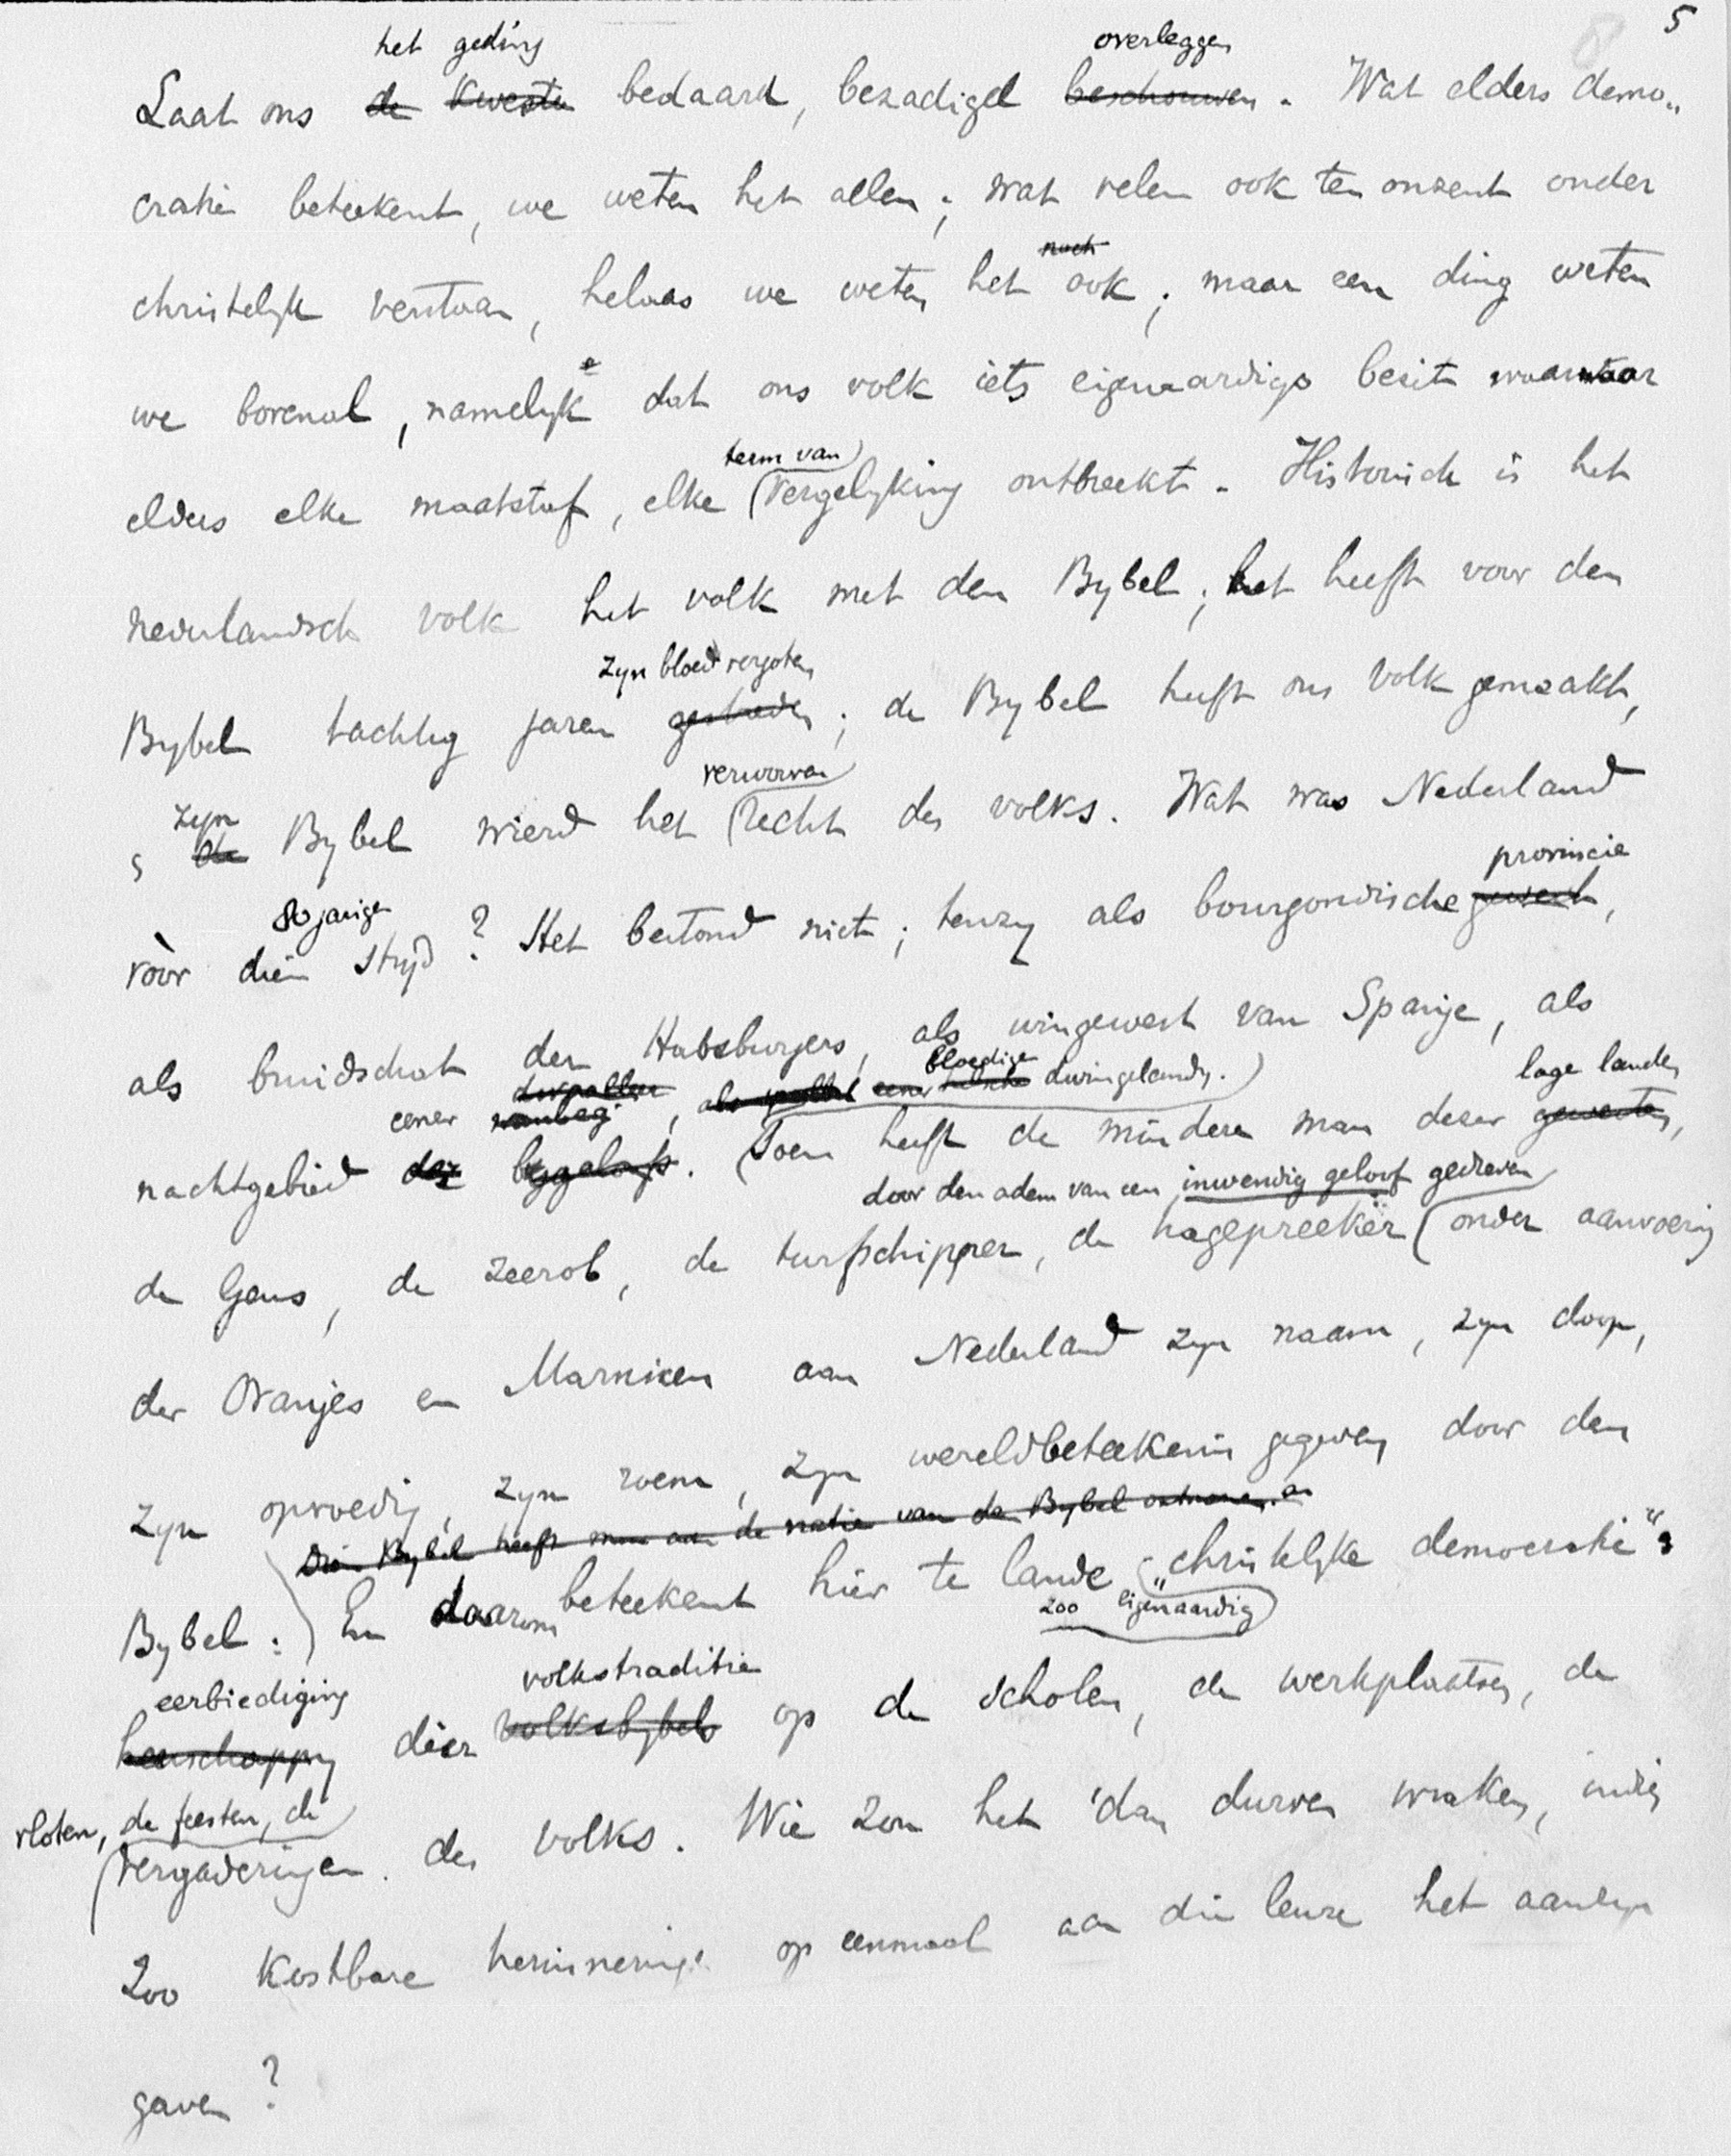 5
het geding overleggen
Laat ons de kwestie bedaard, bezadigd beschouwen. Wat elders demo„
cratie beteekent, we weten het allen; wat velen ook ten onzent onder
noch
christelyk verstaan, helaas we weten het ook; maar een ding weten
we bovenal, namelyk dat ons volk iets eigenaardigs bezit waarvoor
term van
elders elke maatstaf, elke vergelyking ontbreekt. Historisch is het
nederlandsch volk het volk met den Bybel; het heeft voor den
zyn bloed vergoten
Bybel tachtig jaren gestreden; de Bybel heeft ons volk gemaakt,
verworven
zyn
de Bybel wierd het recht des volks. Wat was Nederland
80jarigen provincie
vòòr dien stryd? Het bestond niet; tenzy als bourgondische gewest,
als bruidschat der Habsburgers, als wingewest van Spanje, als
eener als eener bloedige dwingelandy. lage landen
nachtgebied des bygeloofs. Toen heeft de mindere man dezer gewesten,
door den adem van een inwendig geloof gedreven
de Geus, de zeerob, de turfschipper, de hagepreeker onder aanvoering
der Oranjes en Marnixen aan Nederland zyn naam, zyn doop,
zyn opvoedig, zyn roem, zyn wereldbeteekenis gegeven door den
Dien Bybel heeft men aan de natie van den Bybel ontnomen, en
Bybel: En daarom beteekent hier te lande „christelyke democratie“:
zoo eigenaardig
eerbiediging volkstraditie
heerschappy dier volksbybels op de scholen, de werkplaatsen, de
vloten, de feesten, de
vergaderingen des volks. Wie zou het dan durven wraken, indien
zoo kostbare herinnering op eenmaal aan die leuze het aanzyn
gaven?